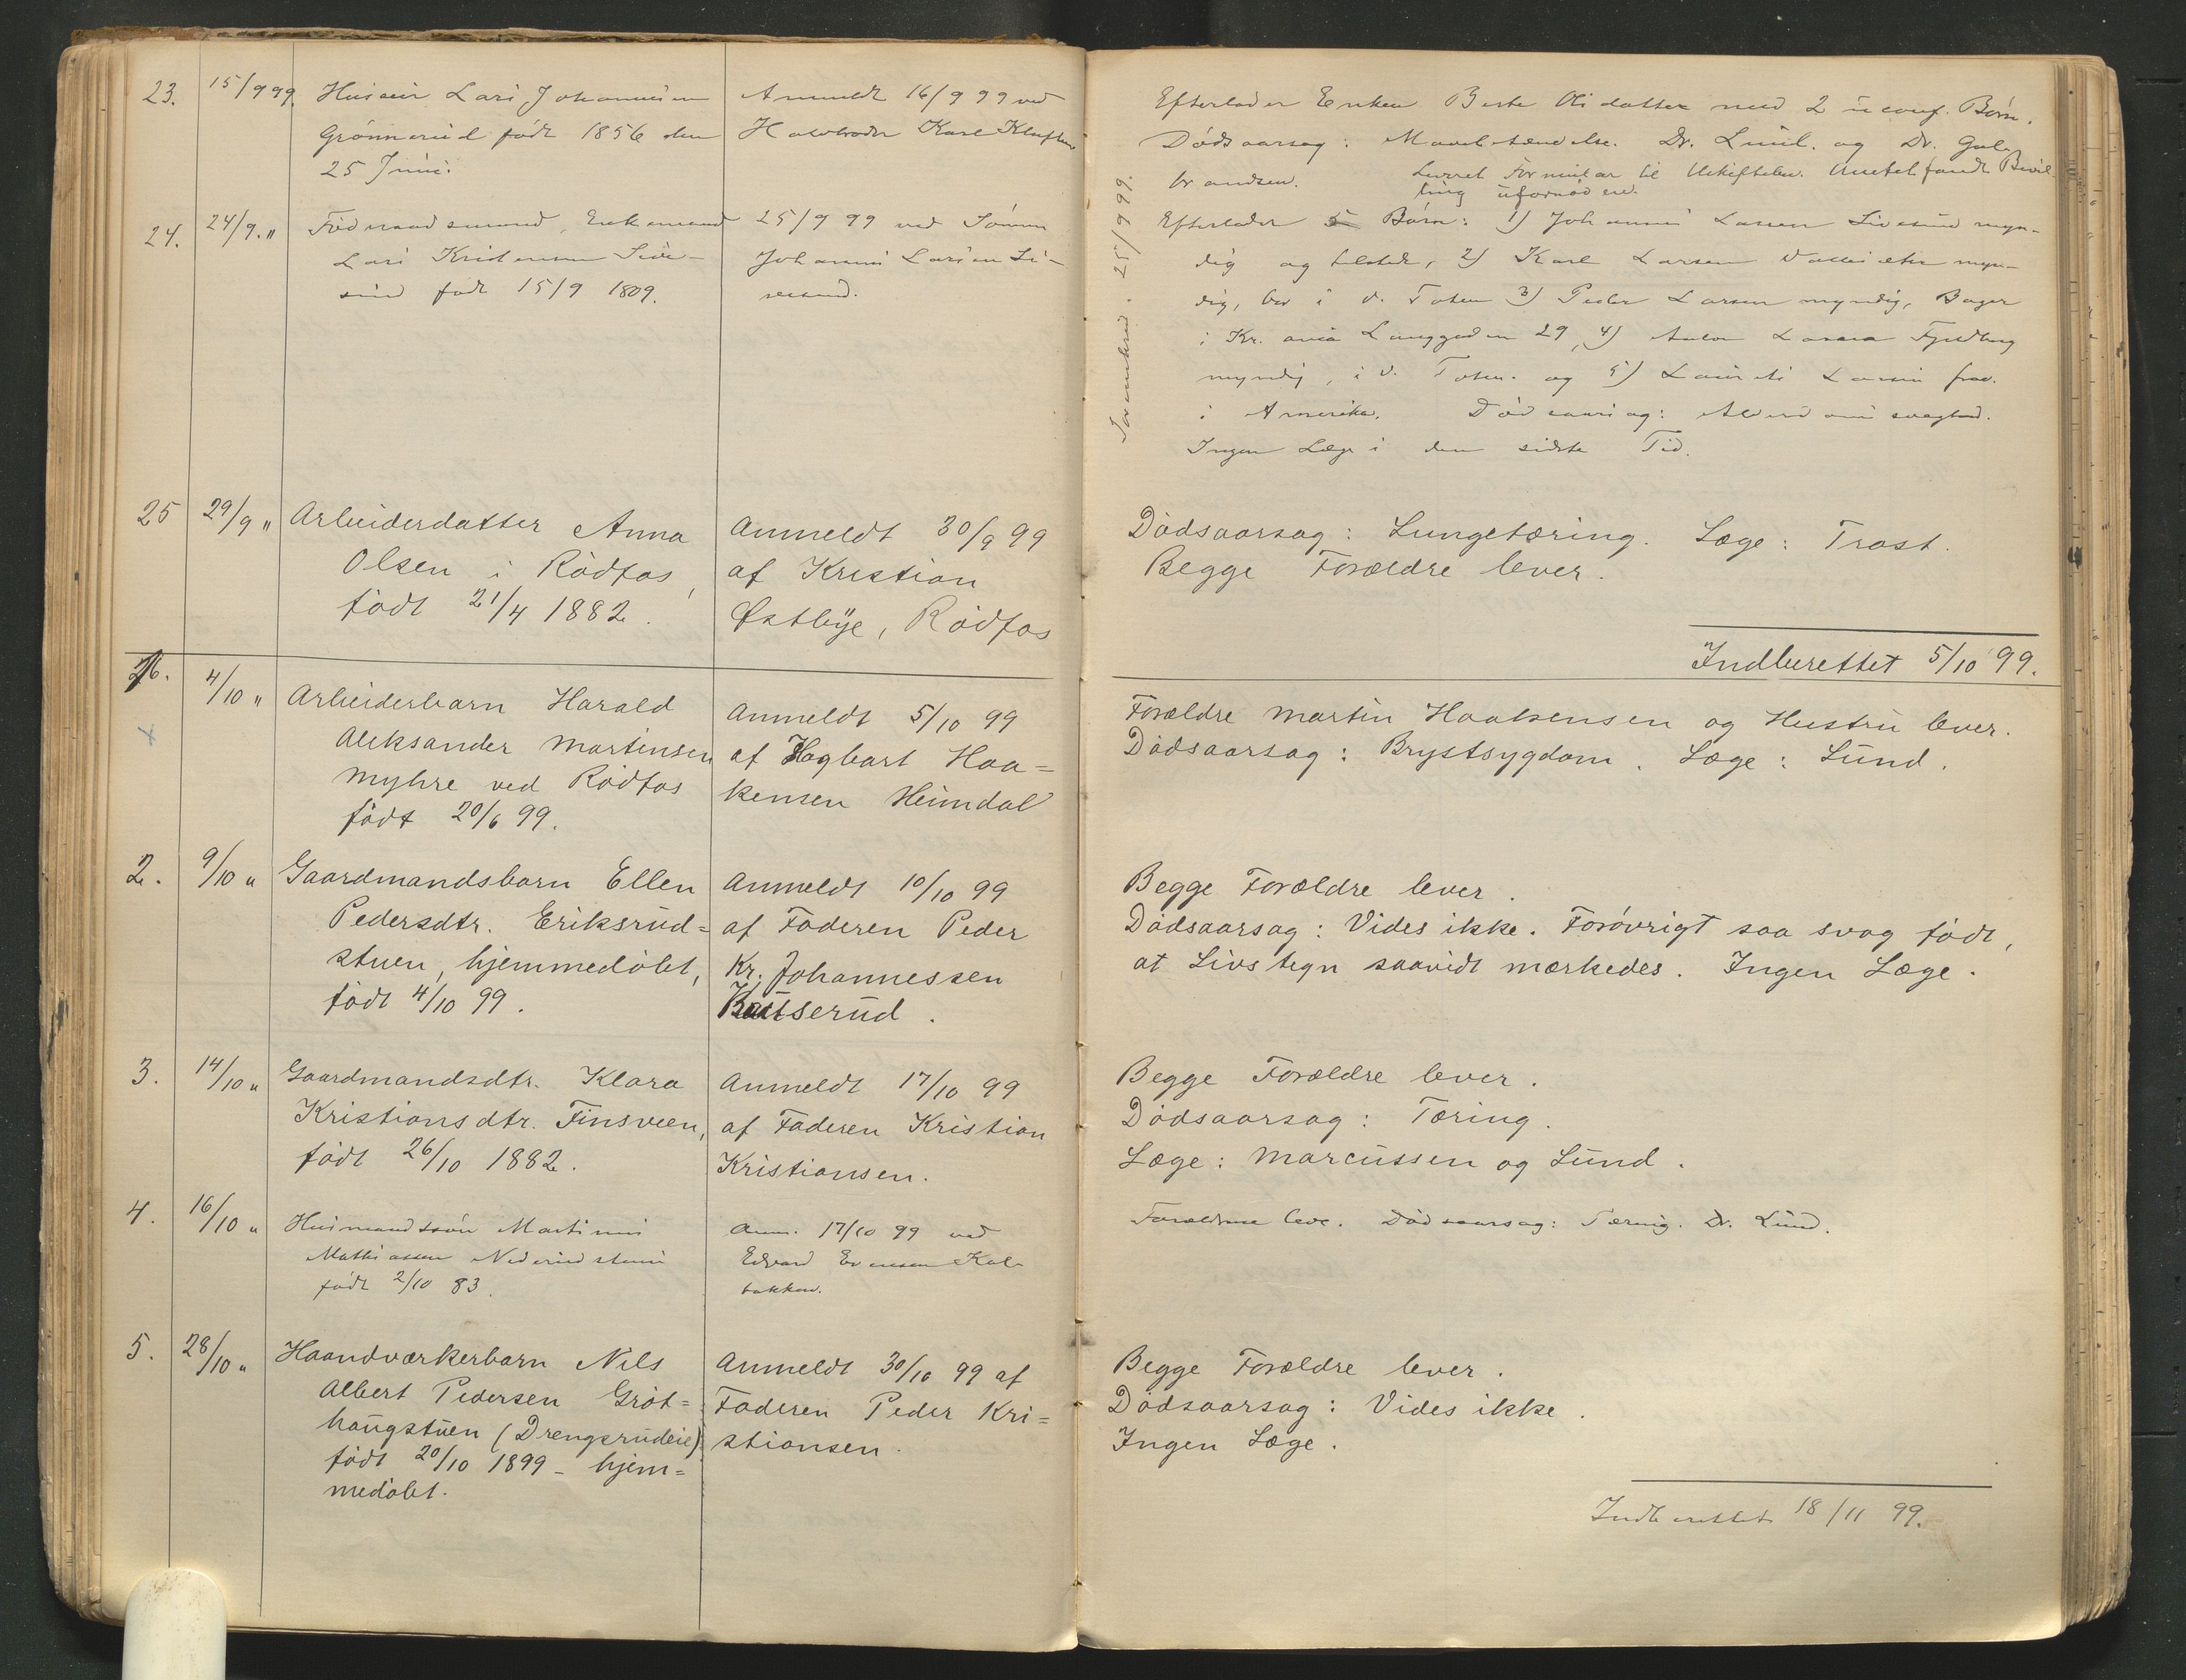 23. 15/9 99. Huseier Lars Johannesen Anmeldt 16/9 99 ved
Grønnerud født 1856 den Halvbroder Karl Kluften
25 Juni.
Efterlader Enken Berte Olsdatter med 2 uconf. Børn.
Dødsaarsag: Dr. Lund. og Dr. Gul-
brandsen. Leveret Formular til
ufornøden.
24. 24/9. " Føderaadsmand, Enkemand 25/9 99 ved Sønnen
Lars Kristensen Sive- Johannes Larsen Si-
sind født 15/9 1809. vesind.
Sivesind. 25/9 99.
Efterlader 5 Børn: 1) Johannes Larsen Sivesind myn-
dig og tilstede, 2) Karl Larsen myn-
dig, bor i V. Toten 3) Peder Larsen myndig, Bager
i Kr.ania Langgaden 29, 4) Anton Larsen Fjeldberg
myndig, i V. Toten. og 5) Laurits Larsen frav.
i Amerika. Dødsaarsag: Alderdomssvaghed.
Ingen Læge i den sidste Tid.
25 29/9 " Arbeiderdatter Anna Anmeldt 30/9 99
Olsen i Rødfos, af Kristian
født 21/4 1882. Østbye, Rødfos
Dødsaarsag: Lungetæring. Læge: Trost.
Begge Forældre lever.
Indberettet 5/10 99.
1. 4/10 " Arbeiderbarn Harald Anmeldt 5/10 99
Aleksander Martinsen af Hagbart Haa=
Myhre ved Rødfos kensen Heimdal
født 20/6 99.
Forældre Martin Haakensen og Hustru lever.
Dødsaarsag: Brystsygdom. Læge: Lund.
2. 9/10 " Gaardmandsbarn Ellen Anmeldt 10/10 99
Pedersdtr. Eriksrud= af Faderen Peder
stuen, hjemmedøbt, Kr. Johannessen
født 4/10 99.
Begge Forældre lever.
Dødsaarsag: Vides ikke. Forøvrigt saa svag født,
at Livstegn saavidt mærkedes. Ingen Læge.
3. 14/10 " Gaardmandsdtr. Klara Anmeldt 17/10 99
Kristiansdtr. Finsveen, af Faderen Kristian
født 26/10 1882. Kristiansen.
Begge Forældre lever.
Dødsaarsag: Tæring.
Læge: Marcussen og Lund.
4. 16/10 " Husmandssøn Martinus Anm. 17/10 99 ved
Mathiassen Nederudstuen Edvard Evensen Kol-
født 2/10 83. bakken.
Forældrene leve. Dødsaarsag: Tæring. Dr. Lund.
5. 28/10 " Haandværkerbarn Nils Anmeldt 30/10 99 af
Albert Pedersen Grøt= Faderen Peder Kri=
haugstuen (Drengsrudeie) stiansen.
født 20/10 1899 - hjem=
medøbt.
Begge Forældre lever.
Dødsaarsag: Vides ikke.
Ingen Læge.
Indberettet 18/11 99.